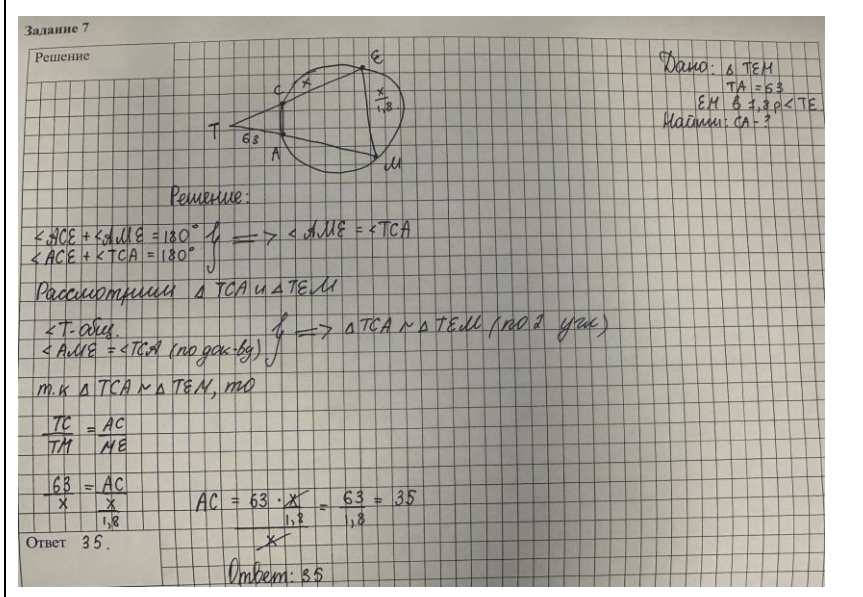 Задание 7
Решение
T
63
C
x
E
x/1,8
A
M
Дано: △ TEM
TA = 63
EM в 1,8 р < TE
Найти: CA - ?
Решение:
∠ACE + ∠AME = 180° } => ∠AME = ∠TCA
∠ACE + ∠TCA = 180°
Рассмотрим △ TCA и △ TEM
∠T - общ.
∠AME = ∠TCA (по док-ву) } => △TCA ~ △TEM (по 2 угл)
т.к △ TCA ~ △ TEM, то
TC/TM = AC/ME
63/x = AC/(x/1,8)
AC = (63 · x/1,8)/x = 63/1,8 = 35
Ответ 35.
Ответ: 35